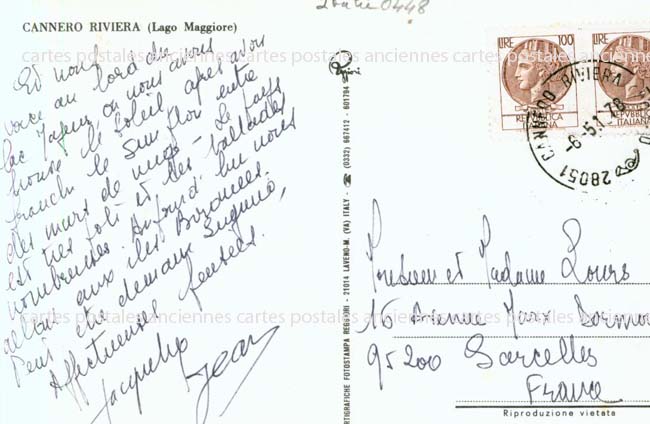 2 Italie 0448
CANNERO RIVIERA (Lago Maggiore)
Et nous
voici au bord du
lac Majeur où nous avons
trouvé le soleil après avoir
franchi le Simplon entre
des murs de neige - Le pays
est très joli et les ballades
nombreuses. Aujourd'hui nous
allons aux îles Borromées.
Peut être demain Lugano,
Affectueuses pensées.
Jacqueline
Jean
cartes postales anciennes cartes postales anciennes cartes postales anciennes
cartes postales anciennes cartes postales anciennes cartes postales anciennes
ARTIGRAFICHE FOTOSTAMPA REGGIORI - 21014 LAVENO-M. (VA) ITALY - ☎ (0332) 667412 - 601794
LIRE 100
REPVBBLICA
ITALIANA
LIRE
REPVBBLICA
ITALIANA
28051 CANNERO RIVIERA
-6-5 78
Monsieur et Madame Louis
16 Avenue Marx Dormoy
95200 Sarcelles
France
Riproduzione vietata